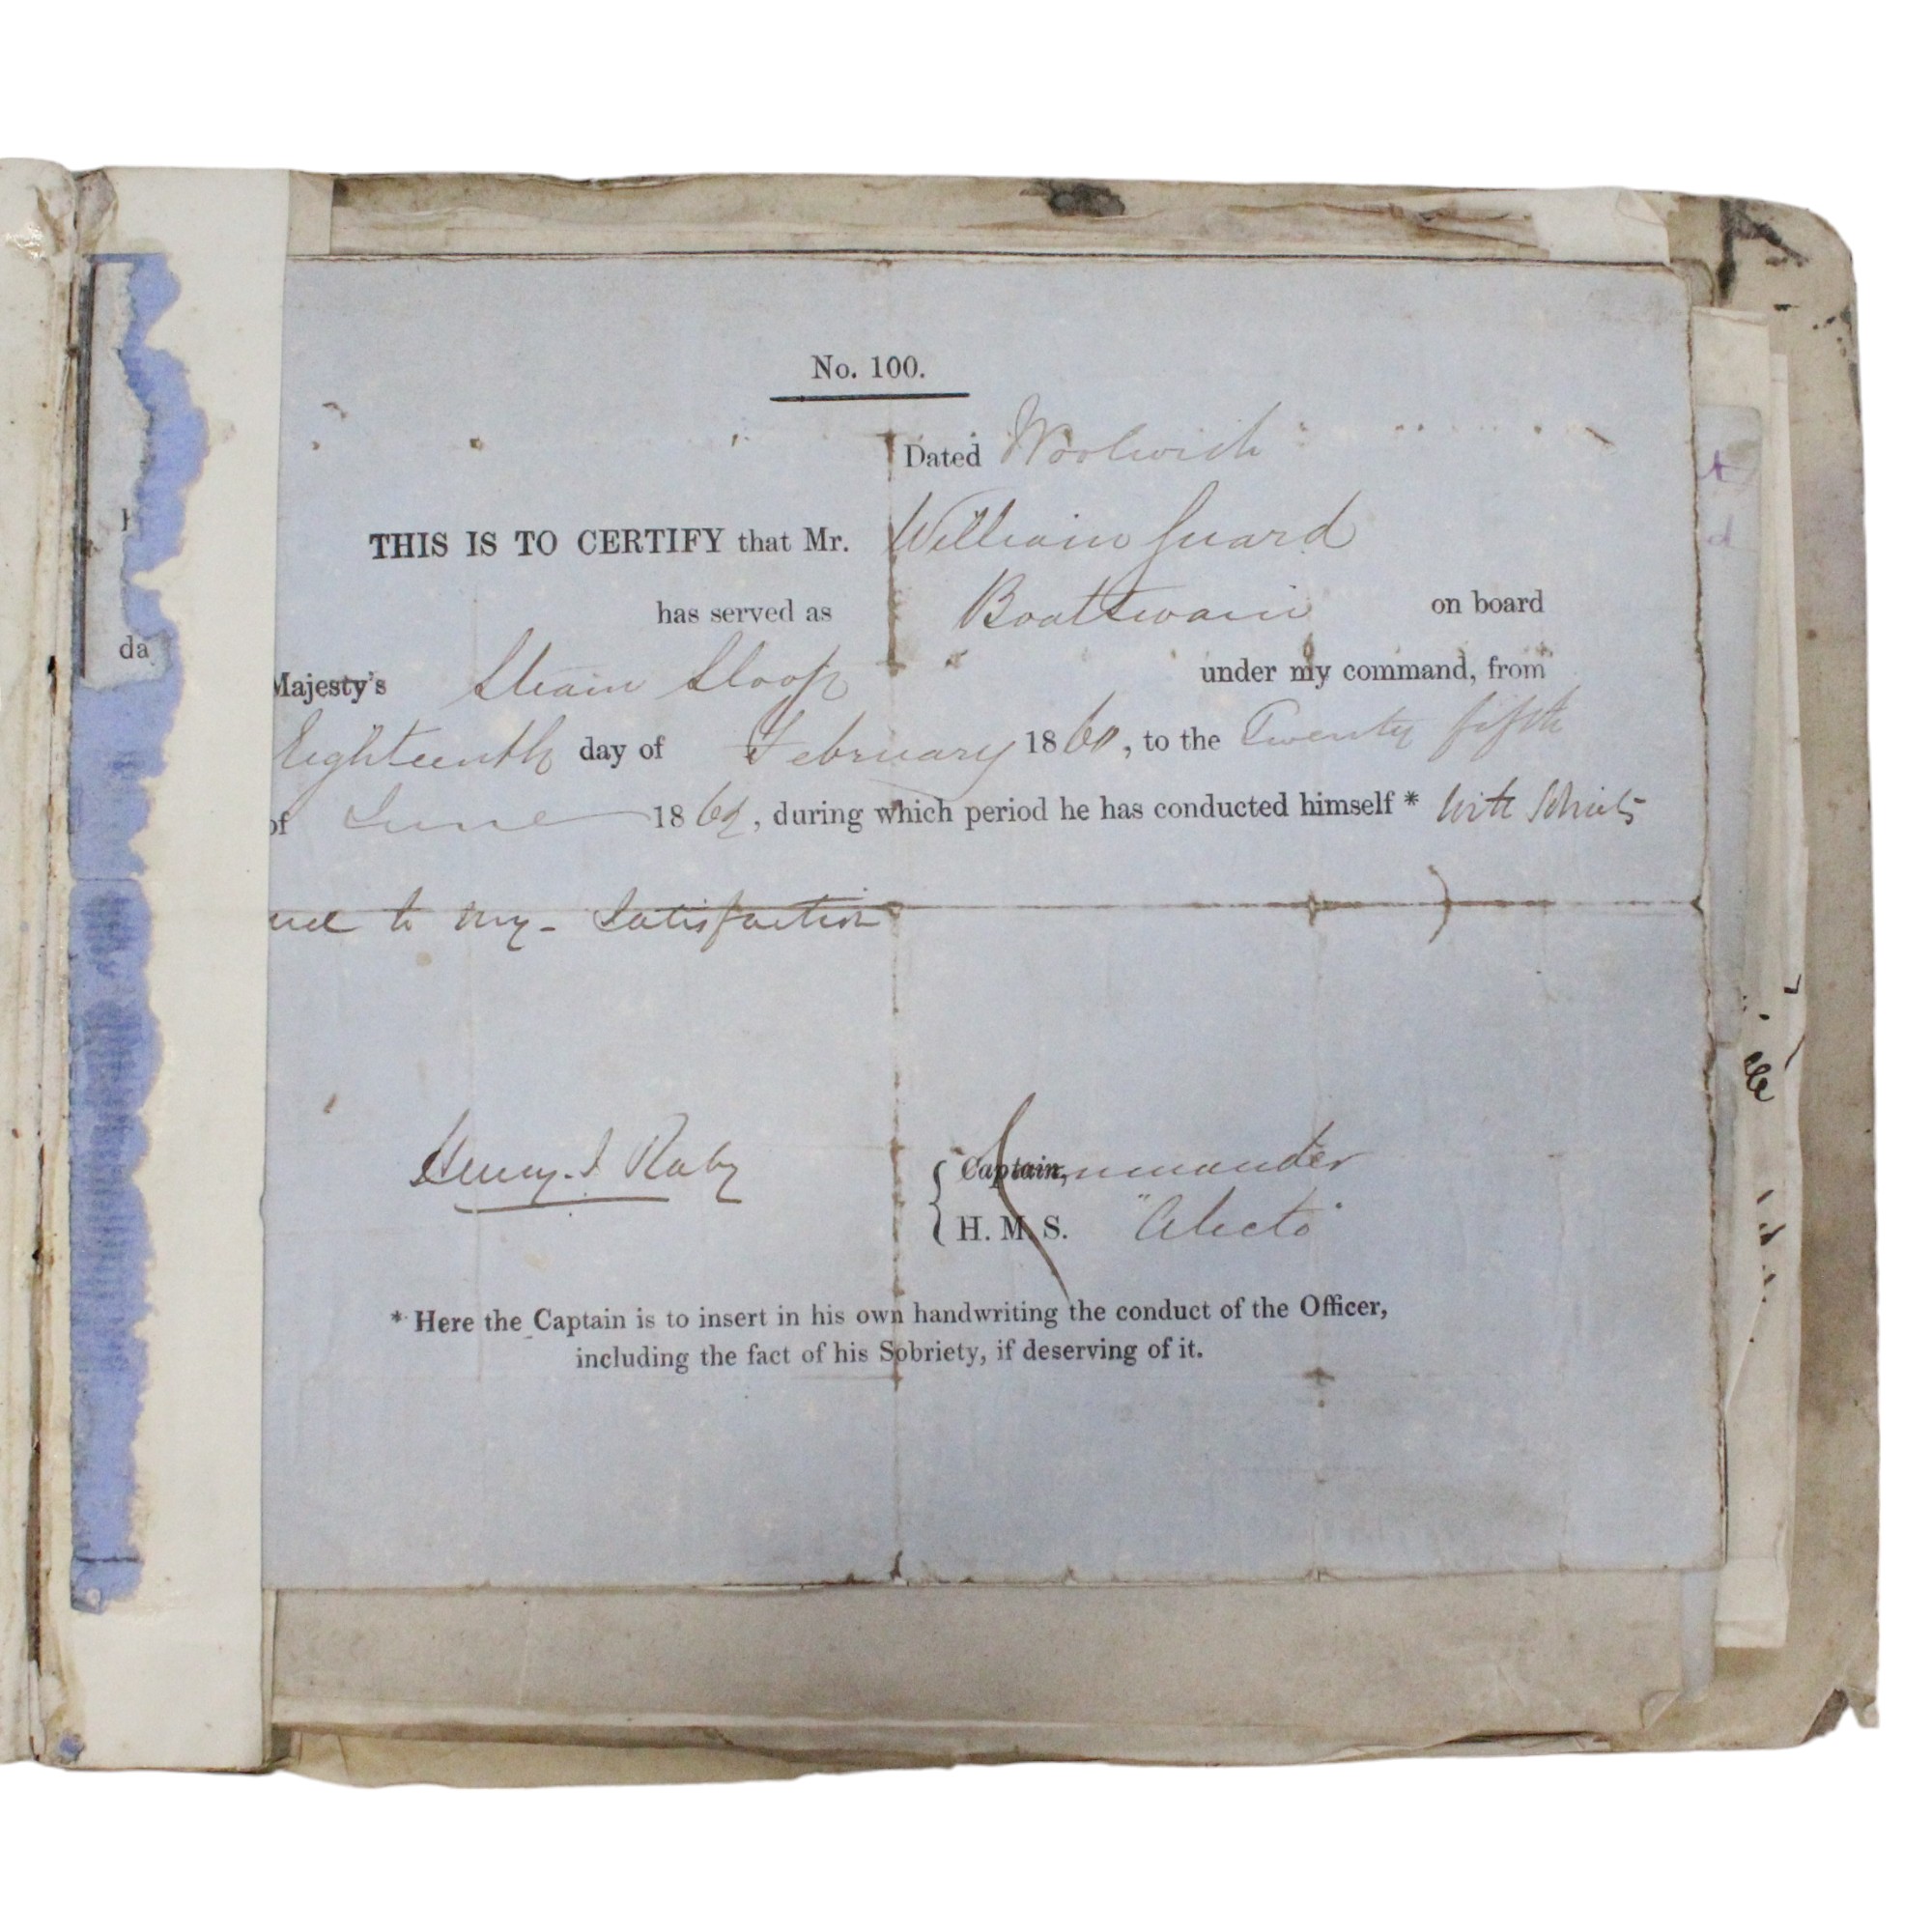 No. 100.
Dated Woolwich
THIS IS TO CERTIFY that Mr. William Guard
has served as Boatswain on board
Majesty's Steam Sloop under my command, from
Eighteenth day of February 1860, to the Twenty fifth
of June 1862, during which period he has conducted himself * with Sobriety
and to my Satisfaction
Henry J Raby
Captain, Commander
H. M. S. "Alecto"
* Here the Captain is to insert in his own handwriting the conduct of the Officer,
including the fact of his Sobriety, if deserving of it.
da